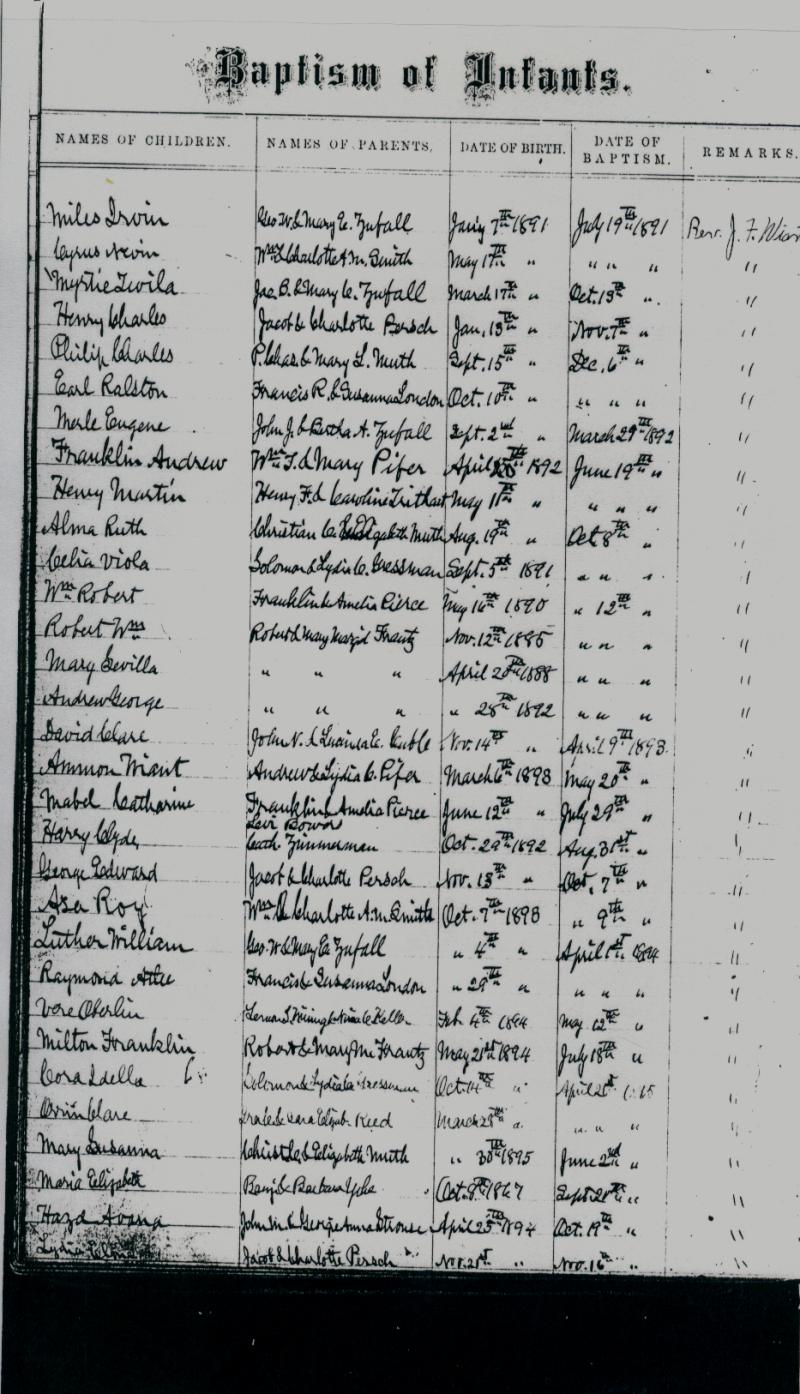 Baptism of Infants.
NAMES OF CHILDREN. NAMES OF PARENTS. DATE OF BIRTH. DATE OF BAPTISM. REMARKS.
Miles Irvin Geo W. & Mary E. Zufall Jan'y 7th 1891 July 19th 1891 Rev. J. F. Wiant
Cyrus Nevin Wm & Charlotte A.M. Smith May 17th " " " " "
Myrtie Twila Jac. B. & Mary C. Zufall March 17th " Oct. 13th " "
Henry Charles Jacob & Charlotte Persch Jan. 13th " Nov. 7th " "
Philip Charles P. Chas. & Mary L. Muth Sept. 15th " Dec. 6th " "
Earl Ralston Francis R. & Susanna London Oct. 10th " " " " "
Merle Eugene John J. & Bertha A. Zufall Sept. 2nd " March 29th 1892 "
Franklin Andrew Wm T. & Mary Pifer April 1892 June 19th " "
Henry Martin Henry F. & Caroline May 11th " " " " "
Alma Ruth Christian C. & Elizabeth Muth Aug. 19th " Oct 8th " "
Celia Viola Solomon & Lydia C. Gressman Sept. 5th 1891 " " " "
Wm Robert Franklin & Amelia Pierce May 16th 1890 " 12th " "
Robert Wm Robert & Mary Frantz Nov. 12th 1885 " " " "
Mary Sevilla " " " April 20th 1888 " " " "
Andrew George " " " " 28th 1892 " " " "
David Clare John N. & Lucinda E. Nov. 14th " April 9th 1893 "
Ammon Wiant Andrew & Lydia C. Pifer March 6th 1893 May 20th " "
Mabel Catharine Franklin & Amelia Pierce June 12th " July 29th " "
Levi Bowor
Harry Clyde Cath Zimmerman Oct. 29th 1892 Aug. 31st " "
George Edward Jacob & Charlotte Persch Nov. 13th " Oct. 7th " "
Asa Roy Wm & Charlotte A.M. Smith Oct. 7th 1893 " 9th " "
Luther William Geo. W. & Mary E. Zufall " 4th " April 1st 1894 "
Raymond Francis & Susanna London " 29th " " " " "
Vere Oberlin Feb. 4th 1894 May 12th " "
Milton Franklin Robert & Mary M. Frantz May 21st 1894 July 18th " "
Cora Idella Solomon & Lydia Gressman Oct. 14th " April 21st "
Orvin Clare Reed March 28th " " " " "
Mary Susanna & Elizabeth Muth " 30th 1895 June 2nd " "
Maria Elizabeth Benj. & Barbara Oct. 8th 1867 Sept. 21st " "
John & George Anna Strouse April 25th 1894 Oct. 19th " "
Lydia Jacob & Charlotte Persch Nov. 21st " Nov. 16th " "